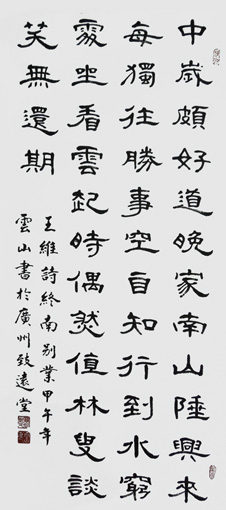 中歲頗好道晚家南山陲興來
每獨往勝事空自知行到水窮
處坐看雲起時偶然值林叟談
笑無還期
王維詩終南別業甲午年
雲山書於廣州致遠堂